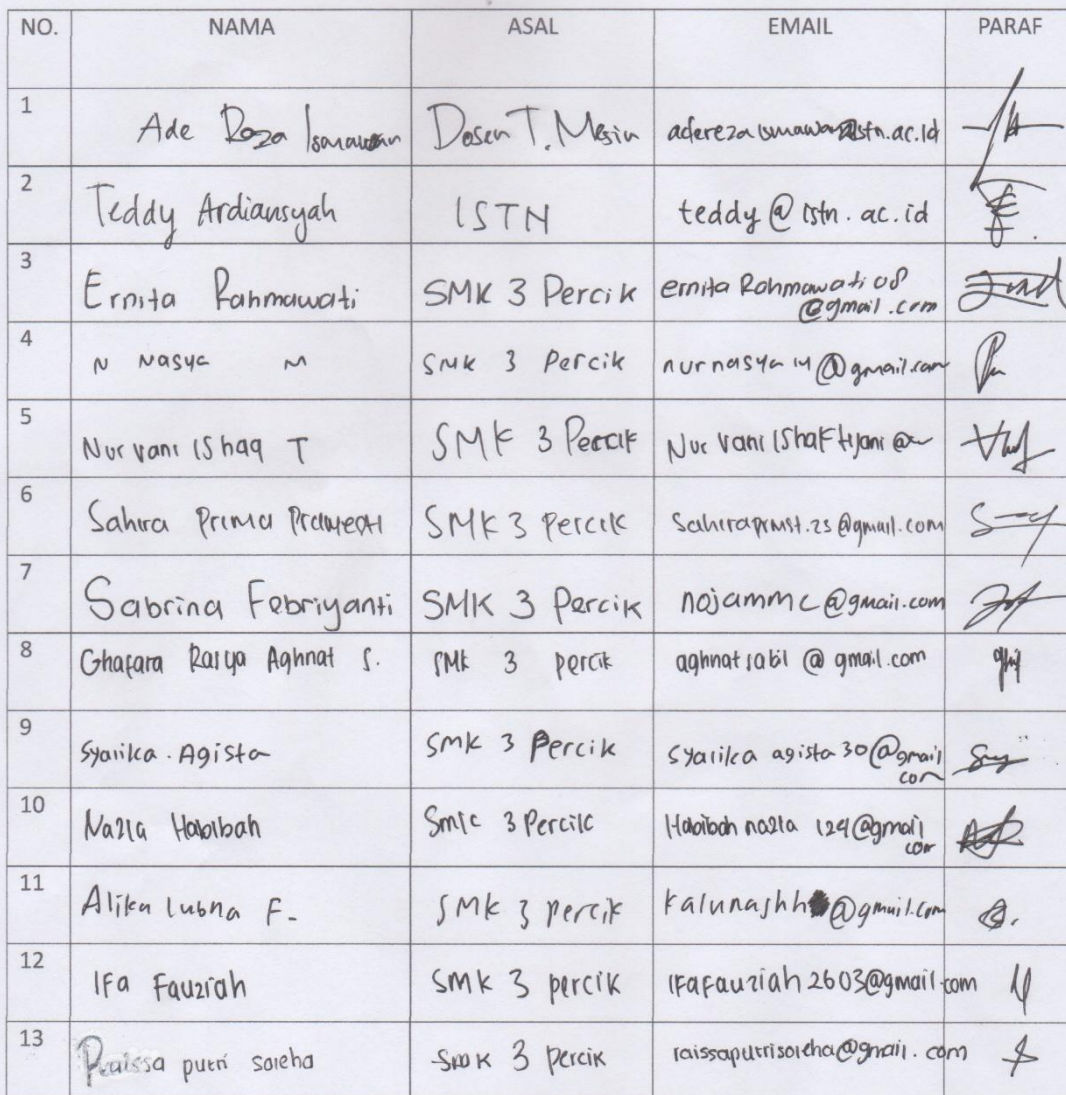 NO. NAMA ASAL EMAIL PARAF
1 Ade Reza Ismawan Dosen T. Mesin aderezaismawan@istn.ac.id
2 Teddy Ardiansyah ISTN teddy@istn.ac.id
3 Ernita Rahmawati SMK 3 Percik ernita Rahmawati 08
@gmail.com
4 N Nasya M SMK 3 Percik nurnasya14@gmail.com
5 Nur vani IShaq T SMK 3 Percik Nur vani IShaktijani@
6 Sahira Prima SMK 3 Percik Sahiraprmst.25@gmail.com
7 Sabrina Febriyanti SMK 3 Percik nojammc@gmail.com
8 Ghafara Rasya Aghnat S. SMK 3 percik aghnatsabil@gmail.com
9 Syarika Agista SMK 3 Percik Syarika agista30@gmail
com
10 Nazla Habibah Smk 3 Percik Habibah nazla 129@gmail
com
11 Alika lubna F. SMK 3 percik kalunashh@gmail.com
12 IFa Fauziah SMK 3 percik IFafauziah2603@gmail.com
13 Raissa putri soleha SMK 3 percik raissaputrisoleha@gmail.com